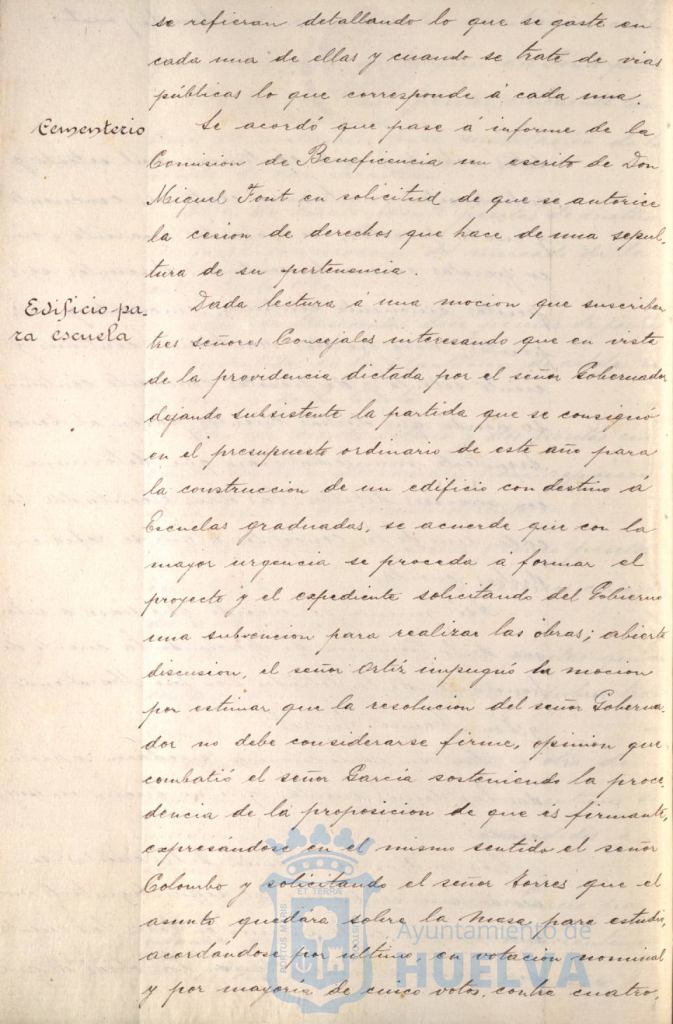 se refieran detallando lo que se gaste en
cada una de ellas y cuando se trate de vias
públicas lo que corresponde á cada una.
Cementerio
Se acordó que pase á informe de la
Comision de Beneficencia un escrito de Don
Miguel Font en solicitud de que se autorice
la cesion de derechos que hace de una sepul-
tura de su pertenencia.
Edificio pa-
ra escuela
Dada lectura á una mocion que suscriben
tres señores Concejales interesando que en vista
de la providencia dictada por el señor Gobernador
dejando subsistente la partida que se consignó
en el presupuesto ordinario de este año para
la construccion de un edificio con destino á
Escuelas graduadas, se acuerde que con la
mayor urgencia se proceda á formar el
proyecto y el expediente solicitando del Gobierno
una subvencion para realizar las obras; abierta
discusion, el señor Ortiz impugnó la mocion
por estimar que la resolucion del señor Goberna-
dor no debe considerarse firme, opinion que
combatió el señor García sosteniendo la proce-
dencia de la proposicion de que es firmante,
expresándose en el mismo sentido el señor
Colombo y solicitando el señor Torres que el
asunto quedára sobre la mesa para estudio,
acordándose por último, en votacion nominal
y por mayoría de cinco votos, contra cuatro,
PORTUS MARIS
ET TERRAE
CUSTODIA
Ayuntamiento de
HUELVA